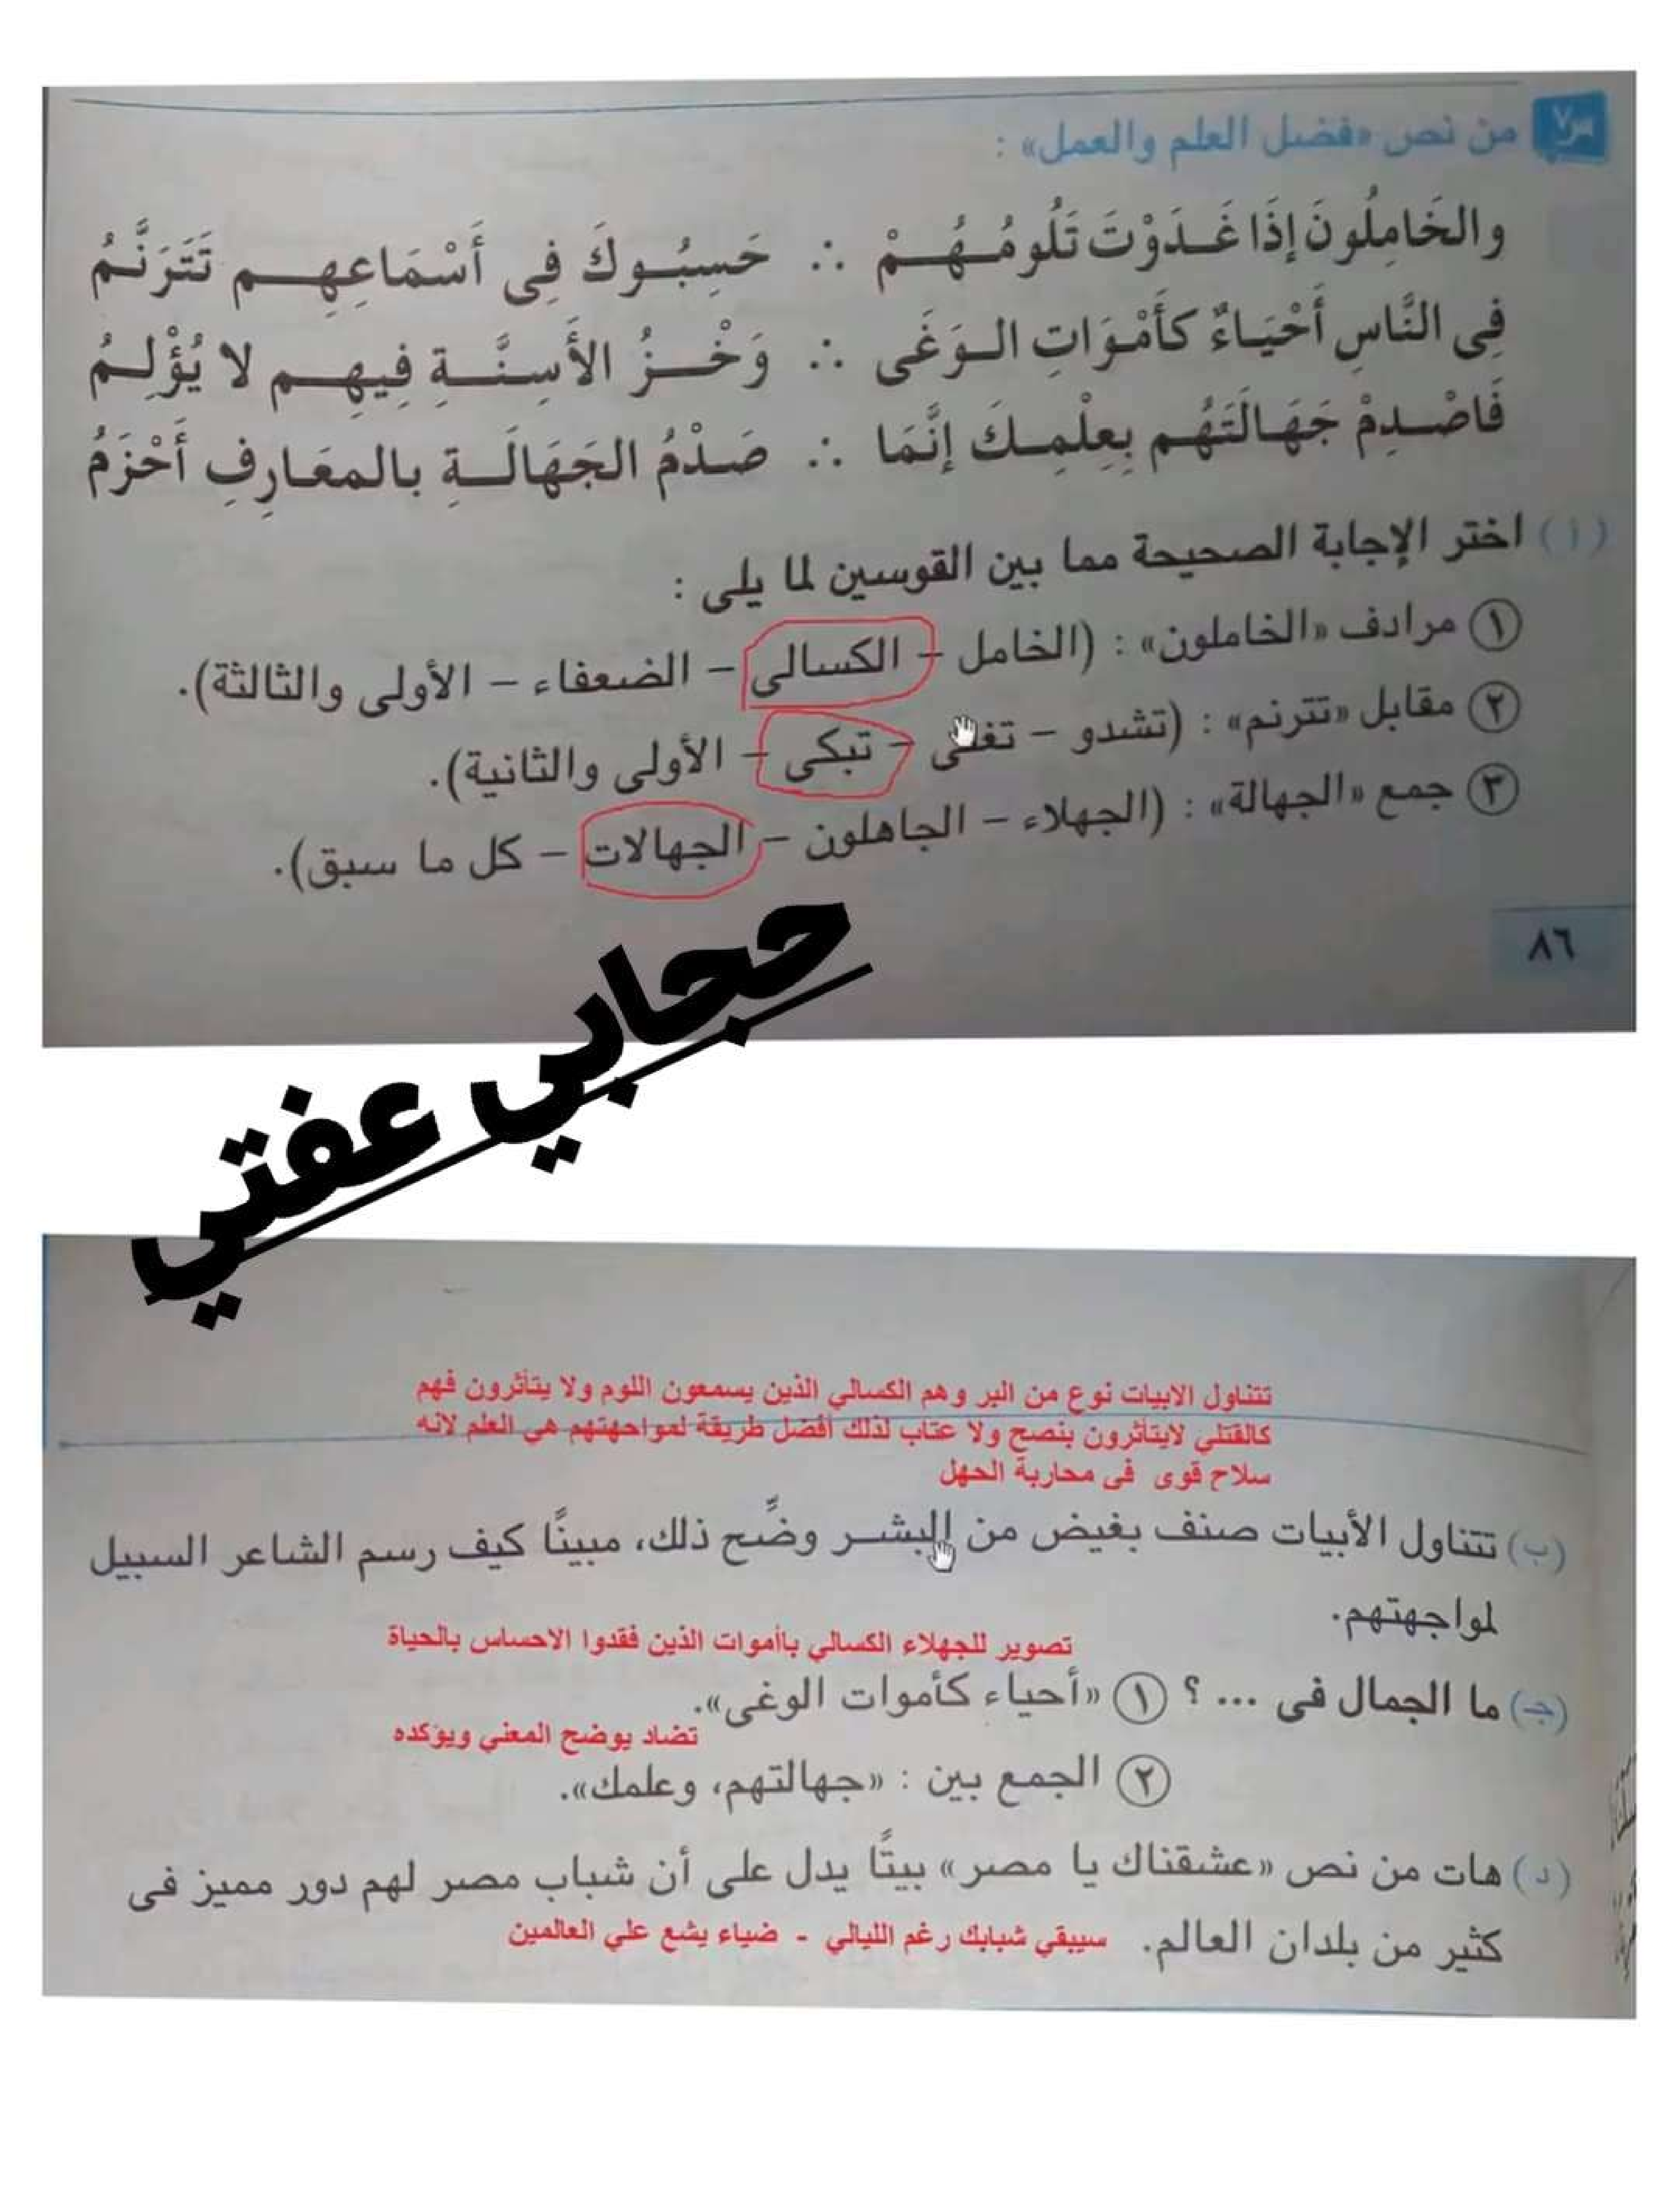 س٧ من نص «فضل العلم والعمل» :
والخَامِلُونَ إذَا غَدَوْتَ تَلُومُهُمْ ∴ حَسِبُوكَ فِى أَسْمَاعِهِم تَتَرَنَّمُ
فِى النَّاسِ أَحْيَاءٌ كأَمْوَاتِ الوَغَى ∴ وَخْزُ الأَسِنَّةِ فِيهِم لا يُؤْلِمُ
فَاصْدِمْ جَهَالَتَهُم بِعِلْمِكَ إنَّمَا ∴ صَدْمُ الجَهَالَةِ بالمعَارِفِ أَحْزَمُ
(أ) اختر الإجابة الصحيحة مما بين القوسين لما يلى :
١ مرادف «الخاملون» : (الخامل – الكسالى – الضعفاء – الأولى والثالثة).
٢ مقابل «تترنم» : (تشدو – تغنى – تبكى – الأولى والثانية).
٣ جمع «الجهالة» : (الجهلاء – الجاهلون – الجهالات – كل ما سبق).
٨٦
حجابي عفتي
تتناول الابيات نوع من البر وهم الكسالي الذين يسمعون اللوم ولا يتأثرون فهم
كالقتلي لايتأثرون بنصح ولا عتاب لذلك أفضل طريقة لمواجهتهم هي العلم لانه
سلاح قوى فى محاربة الجهل
(ب) تتناول الأبيات صنف بغيض من البشر وضَّح ذلك، مبينًا كيف رسم الشاعر السبيل
لمواجهتهم.
تصوير للجهلاء الكسالي باأموات الذين فقدوا الاحساس بالحياة
(جـ) ما الجمال فى ... ؟ ١ «أحياء كأموات الوغى».
تضاد يوضح المعني ويؤكده
٢ الجمع بين : «جهالتهم، وعلمك».
(د) هات من نص «عشقناك يا مصر» بيتًا يدل على أن شباب مصر لهم دور مميز فى
كثير من بلدان العالم. سيبقي شبابك رغم الليالي - ضياء يشع علي العالمين